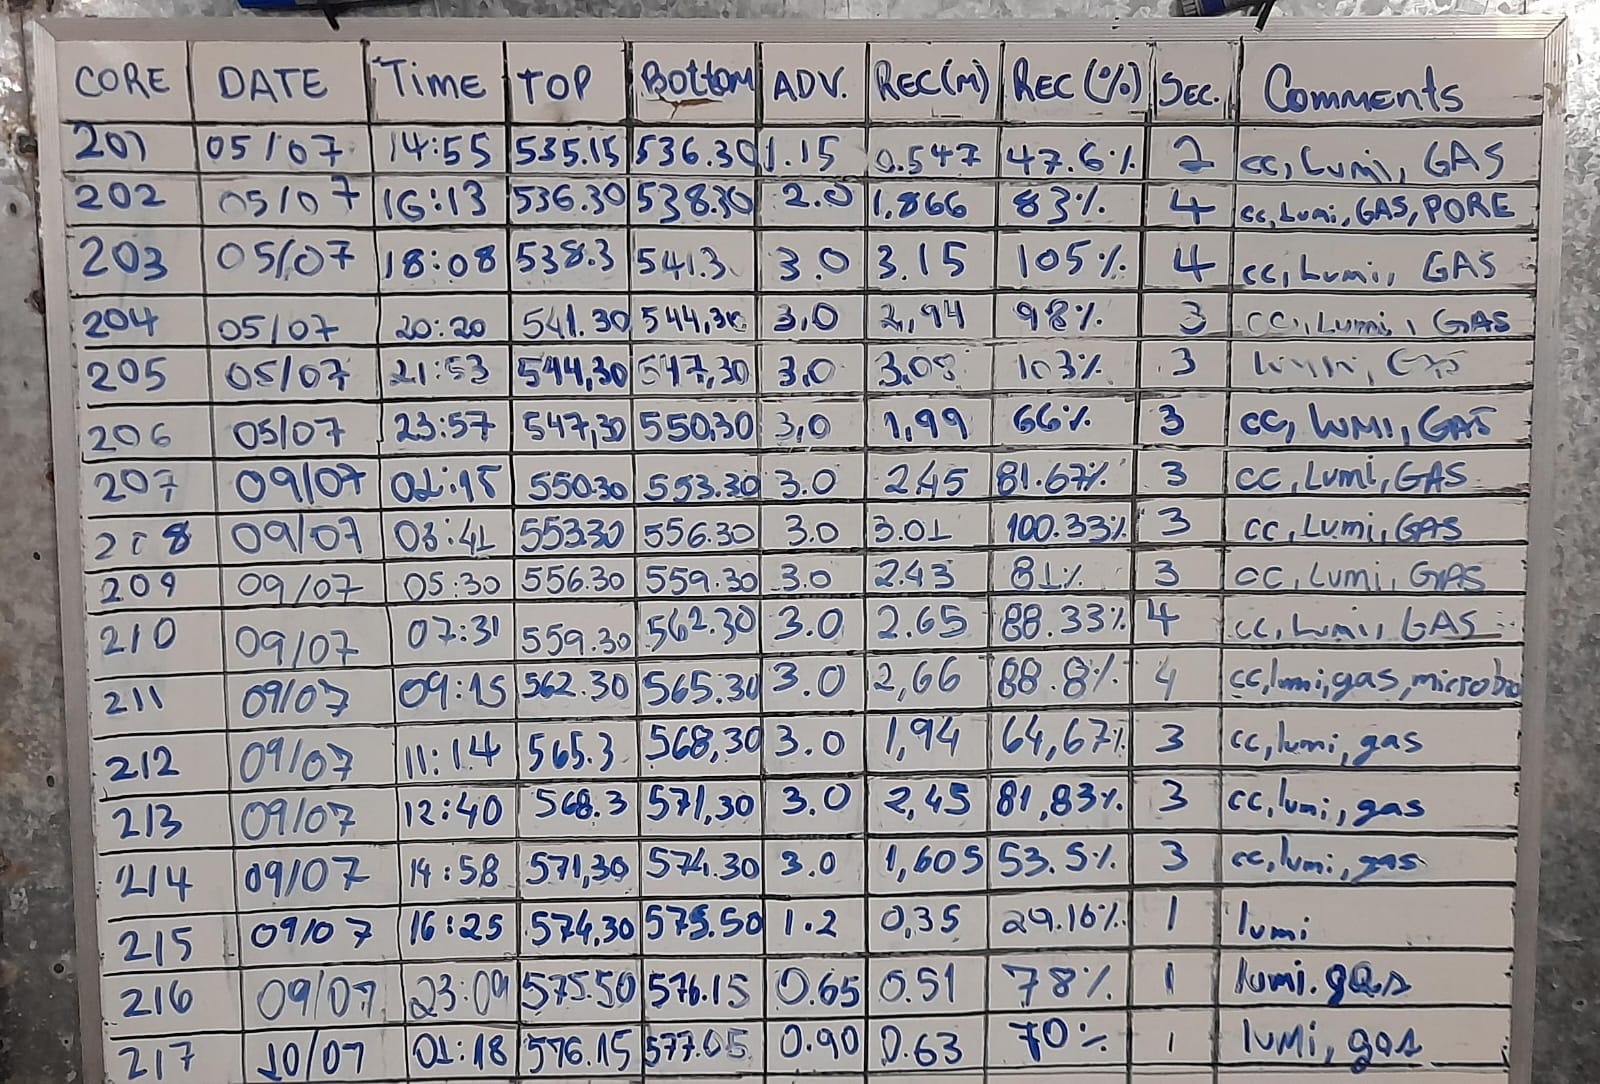 CORE DATE Time TOP Bottom ADV. REC(M) REC (%) SEC. Comments
201 05/07 14:55 535.15 536.30 1.15 0.547 47.6% 2 cc, Lumi, GAS
202 05/07 16:13 536.30 538.30 2.0 1,866 83% 4 cc, Lumi, GAS, PORE
203 05/07 18:08 538.3 541.3 3.0 3.15 105% 4 cc, Lumi, GAS
204 05/07 20:20 541.30 544,30 3,0 2,94 98% 3 CC, Lumi, GAS
205 05/07 21:53 544,30 547,30 3,0 3.08 103% 3 Lumi, GAS
206 05/07 23:57 547,30 550.30 3,0 1,99 66% 3 CC, LUMI, GAS
207 09/07 01:15 550.30 553.30 3.0 2.45 81.67% 3 CC, Lumi, GAS
208 09/07 03:41 553.30 556.30 3.0 3.01 100.33% 3 CC, Lumi, GAS
209 09/07 05:30 556.30 559.30 3.0 2.43 81% 3 CC, Lumi, GAS
210 09/07 07:31 559.30 562.30 3.0 2.65 88.33% 4 cc, Lumi, GAS
211 09/07 09:15 562.30 565.30 3.0 2,66 88.8% 4 cc, lumi, gas, microbio
212 09/07 11:14 565.3 568,30 3.0 1,94 64,67% 3 cc, lumi, gas
213 09/07 12:40 568.3 571,30 3.0 2,45 81,83% 3 cc, lumi, gas
214 09/07 14:58 571,30 574.30 3.0 1,605 53.5% 3 cc, lumi, gas
215 09/07 16:25 574,30 575.50 1.2 0,35 29.16% 1 lumi
216 09/07 23:09 575.50 576.15 0.65 0.51 78% 1 lumi. gas
217 10/07 01:18 576.15 577.05 0.90 0.63 70% 1 lumi, gas